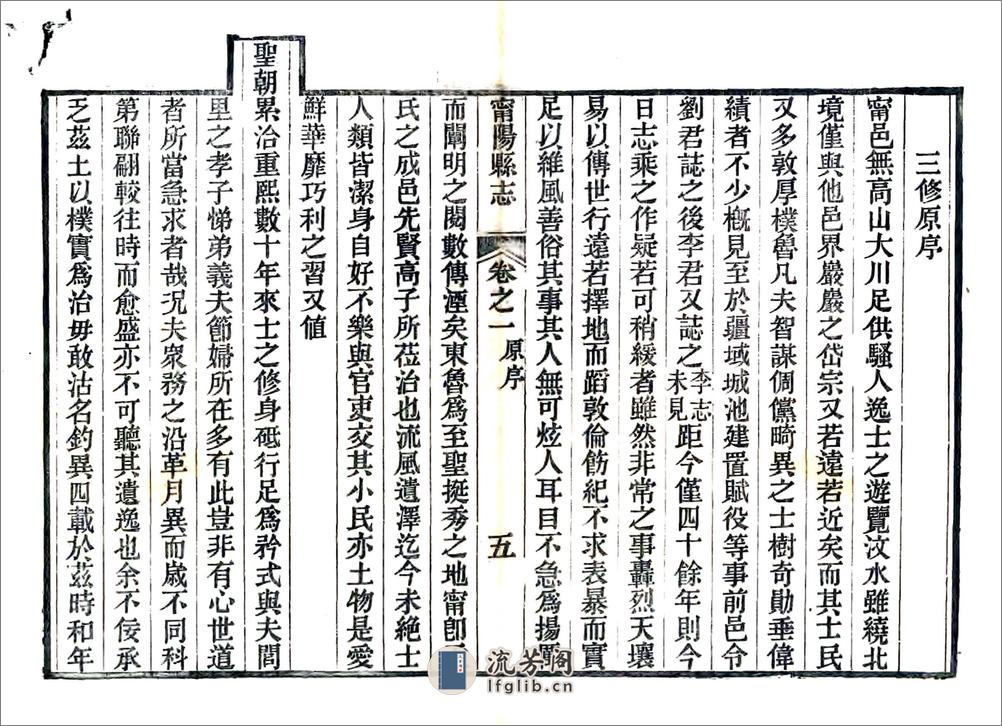 三修原序
甯邑無高山大川足供騷人逸士之遊覽汶水雖繞北
境僅與他邑界嚴嚴之岱宗又若遠若近矣而其士民
又多敦厚樸魯凡夫智謀倜儻畸異之士樹奇勛垂偉
績者不少概見至於疆域城池建置賦役等事前邑令
劉君誌之後李君又誌之李志未見距今僅四十餘年則今
日志乘之作疑若可稍緩者雖然非常之事轟烈天壤
易以傳世行遠若擇地而蹈敦倫飭紀不求表暴而實
足以維風善俗其事其人無可炫人耳目不急為揚
甯陽縣志 卷之一 原序 五
而闡明之閱數傳湮矣東魯為至聖挺秀之地甯即
氏之成邑先賢高子所莅治也流風遺澤迄今未絶士
人類皆潔身自好不樂與官吏交其小民亦土物是愛
鮮華靡巧利之習又值
聖朝累洽重熙數十年來士之修身砥行足為矜式與夫閭
里之孝子悌弟義夫節婦所在多有此豈非有心世道
者所當急求者哉況夫衆務之沿革月異而歲不同科
第聯翩較往時而愈盛亦不可聽其遺逸也余不佞承
乏茲土以樸實為治毋敢沽名釣異四載於茲時和年
流芳阁
lfglib.cn